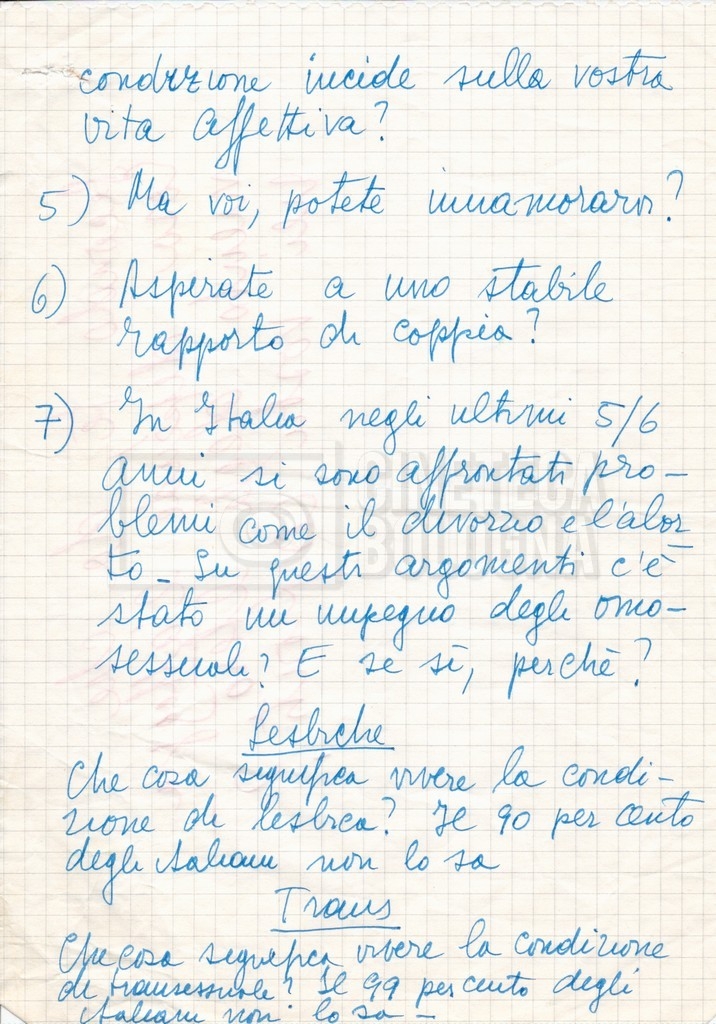 condizione incide sulla vostra
vita affettiva?
5) Ma voi, potete innamorarvi?
6) Aspirate a uno stabile
rapporto di coppia?
7) In Italia negli ultimi 5/6
anni si sono affrontati pro-
blemi come il divorzio e l'abor
to_ Su questi argomenti c'è
stato un impegno degli omo-
sessuali? E se sì, perchè?
Lesbiche
Che cosa significa vivere la condi-
zione di lesbica? Il 90 per cento
degli italiani non lo sa
Trans
Che cosa significa vivere la condizione
di transessuale? Il 99 per cento degli
italiani non lo sa -
CINETECA
BOLOGNA